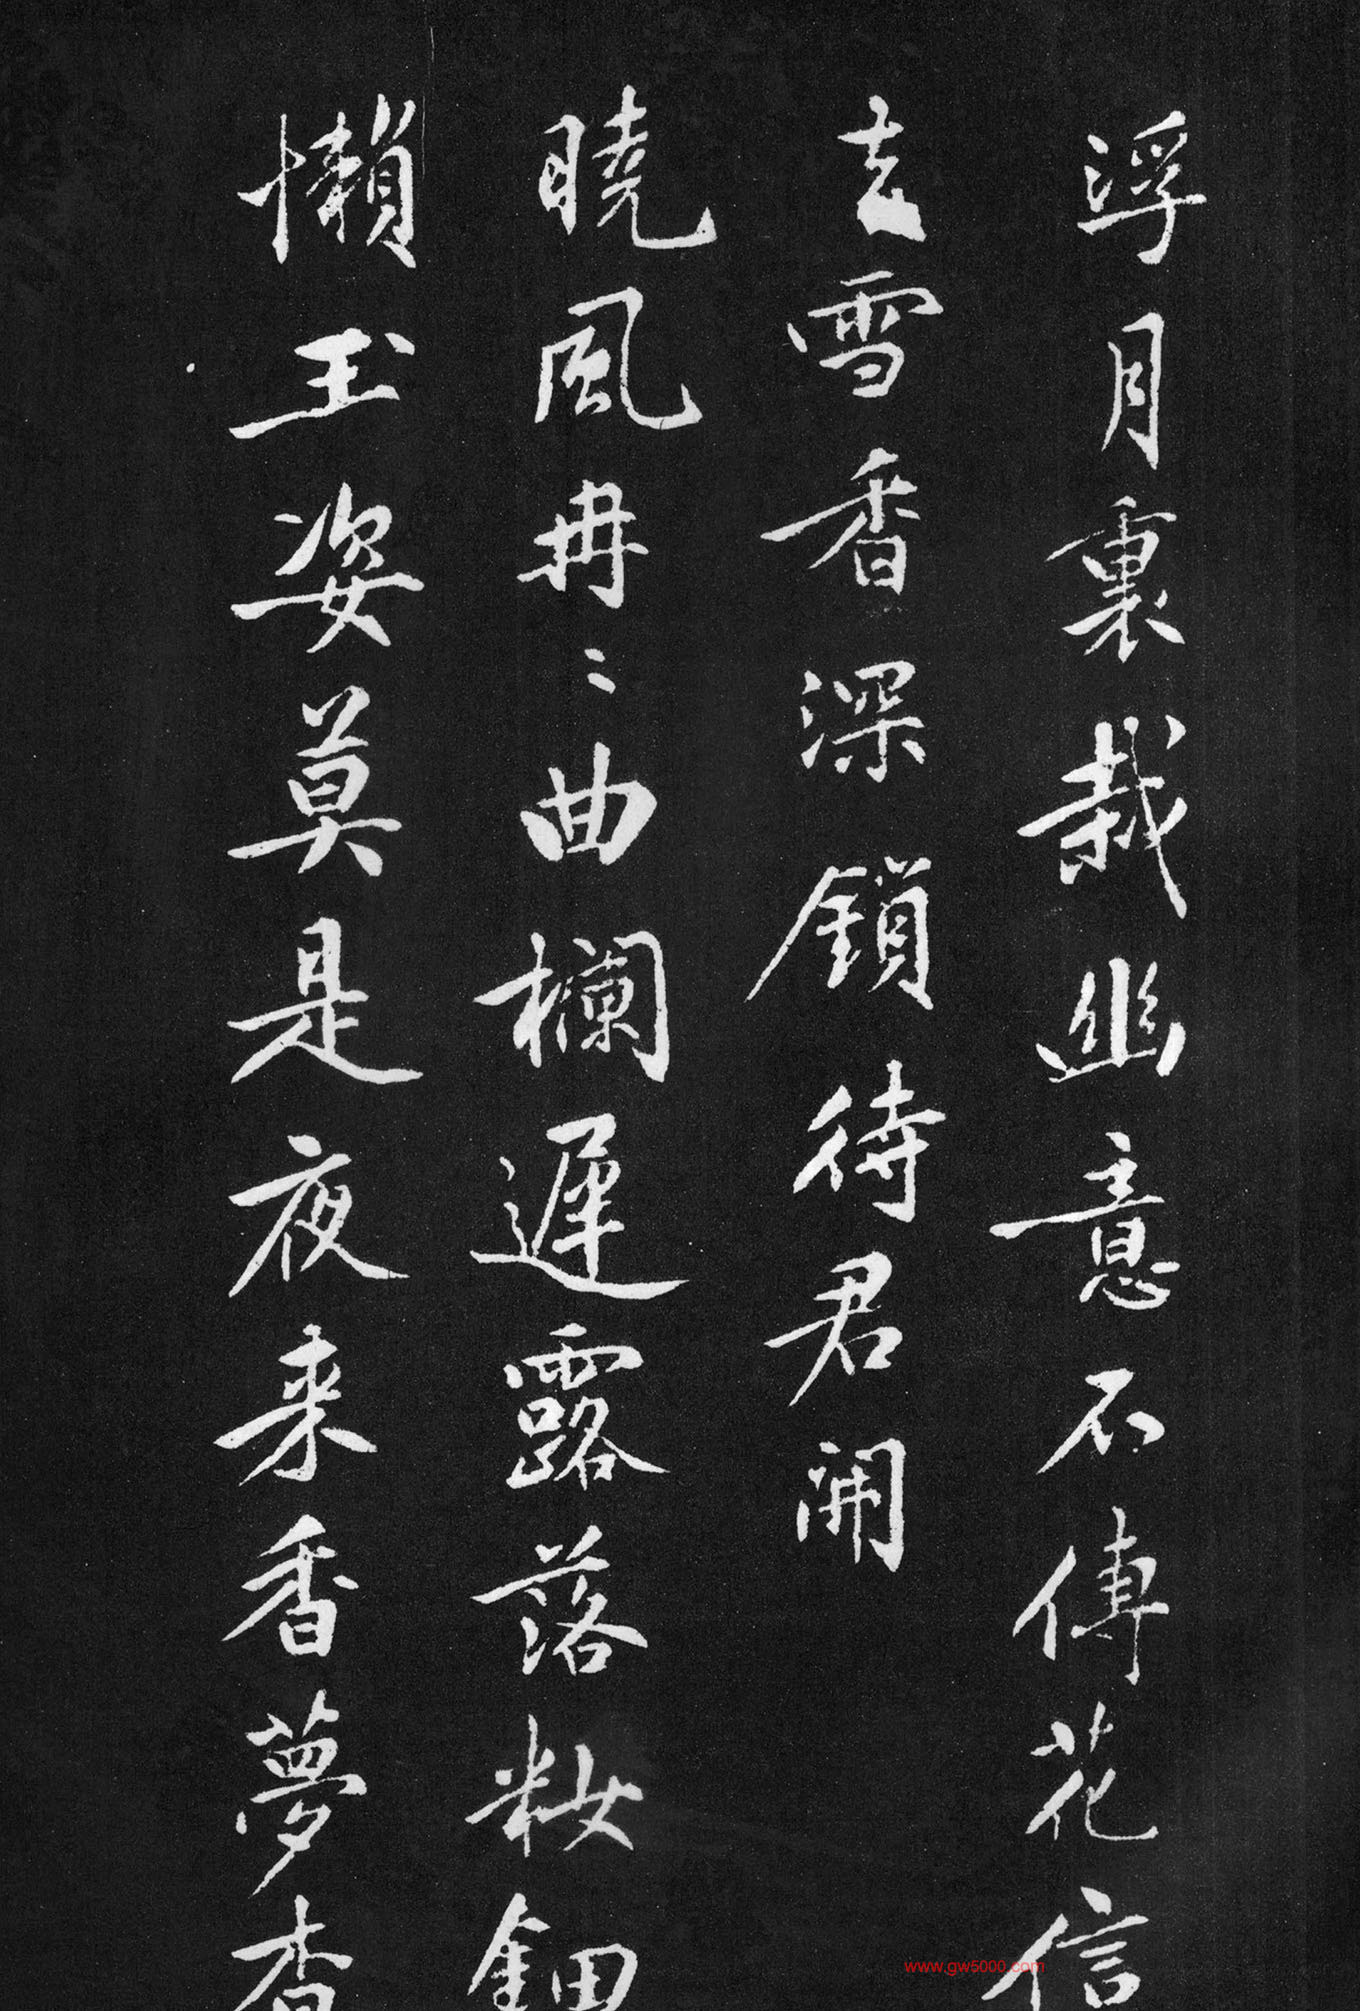 浮月裏裁幽意不傳花信
去雪香深鎖待君開
曉風冉〻曲欄遲露落粧鈿
懶玉姿莫是夜来香夢杳
www.gw5000.com